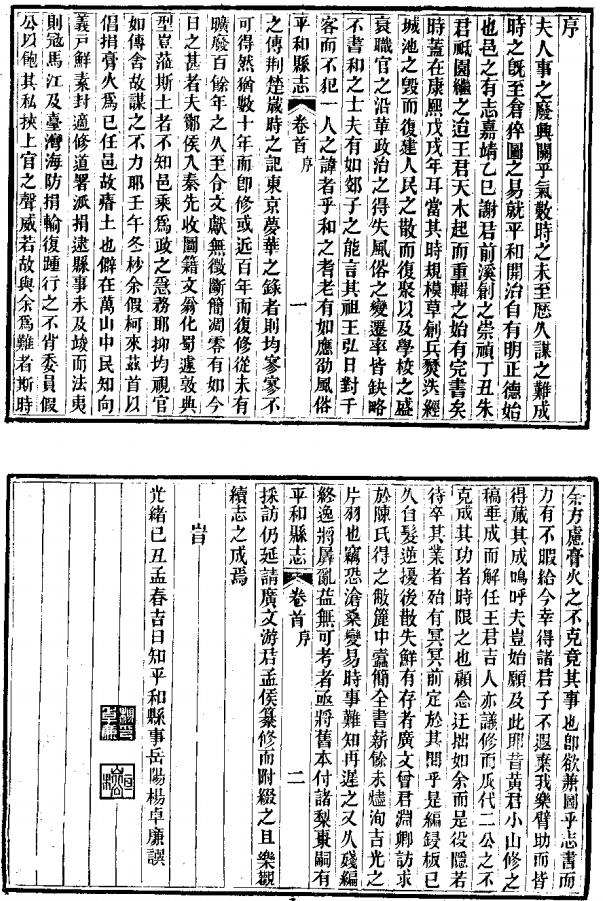 序
夫人事之廢興關乎氣數時之未至歷久謀之難成
時之旣至倉猝圖之易就平和開治自有明正德始
也邑之有志嘉靖乙巳謝君前溪創之崇禎丁丑朱
君祗園繼之迨王君天木起而重輯之始有完書矣
時蓋在康熙戊戌年耳當其時規模草創兵燹迭經
城池之毀而復建人民之散而復聚以及學校之盛
衰職官之沿革政治之得失風俗之變遷率皆缺略
不書和之士夫有如郯子之能言其祖王弘日對千
客而不犯一人之諱者乎和之耆老有如應劭風俗
平和縣志 卷首 序 一
之傳荆楚歲時之記東京夢華之錄者則均寥寥不
可得然猶數十年而卽修或近百年而復修從未有
曠廢百餘年之久至合文獻無徵斷簡凋零有如今
日之甚者夫鄭侯入秦先收圖籍文翁化蜀遽敦典
型豈蒞斯土者不知邑乘爲政之急務耶抑均視官
如傳舍故謀之不力耶壬午冬杪余假柯來茲首以
倡捐膏火爲已任邑故瘠土也僻在萬山中民知向
義戸鮮素封適修道署派捐逮縣事未及竣而法夷
則冠馬江及臺灣海防捐輸復踵行之不肯委員假
公以飽其私挾上官之聲威若故與余爲難者斯時
余方慮膏火之不克竟其事也卽欲兼圖乎志書而
力有不暇給今幸得諸君子不遐棄我樂臂助而皆
得蕆其成鳴呼夫豈始願及此耶昔黃君小山修之
稿垂成而解任王君吉人亦議修而及代二公之不
克成其功者時限之也顧念迂拙如余而是役隱若
待卒其業者殆有冥冥前定於其間乎是編鋟板已
久自髮逆擾後散失鮮有存者廣文曾君淵卿訪求
於陳氏得之敝簏中蠹簡全書薪餘未燼洵吉光之
片羽也竊恐滄桑變易時事難知再遲之又久殘編
終逸將孱亂益無可考者亟將舊本付諸梨棗嗣有
平和縣志 卷首 序 二
採訪仍延請廣文游君孟侯纂修而附綴之且樂觀
續志之成焉
旹
光緒己丑孟春吉日知平和縣事岳陽楊卓廉譔